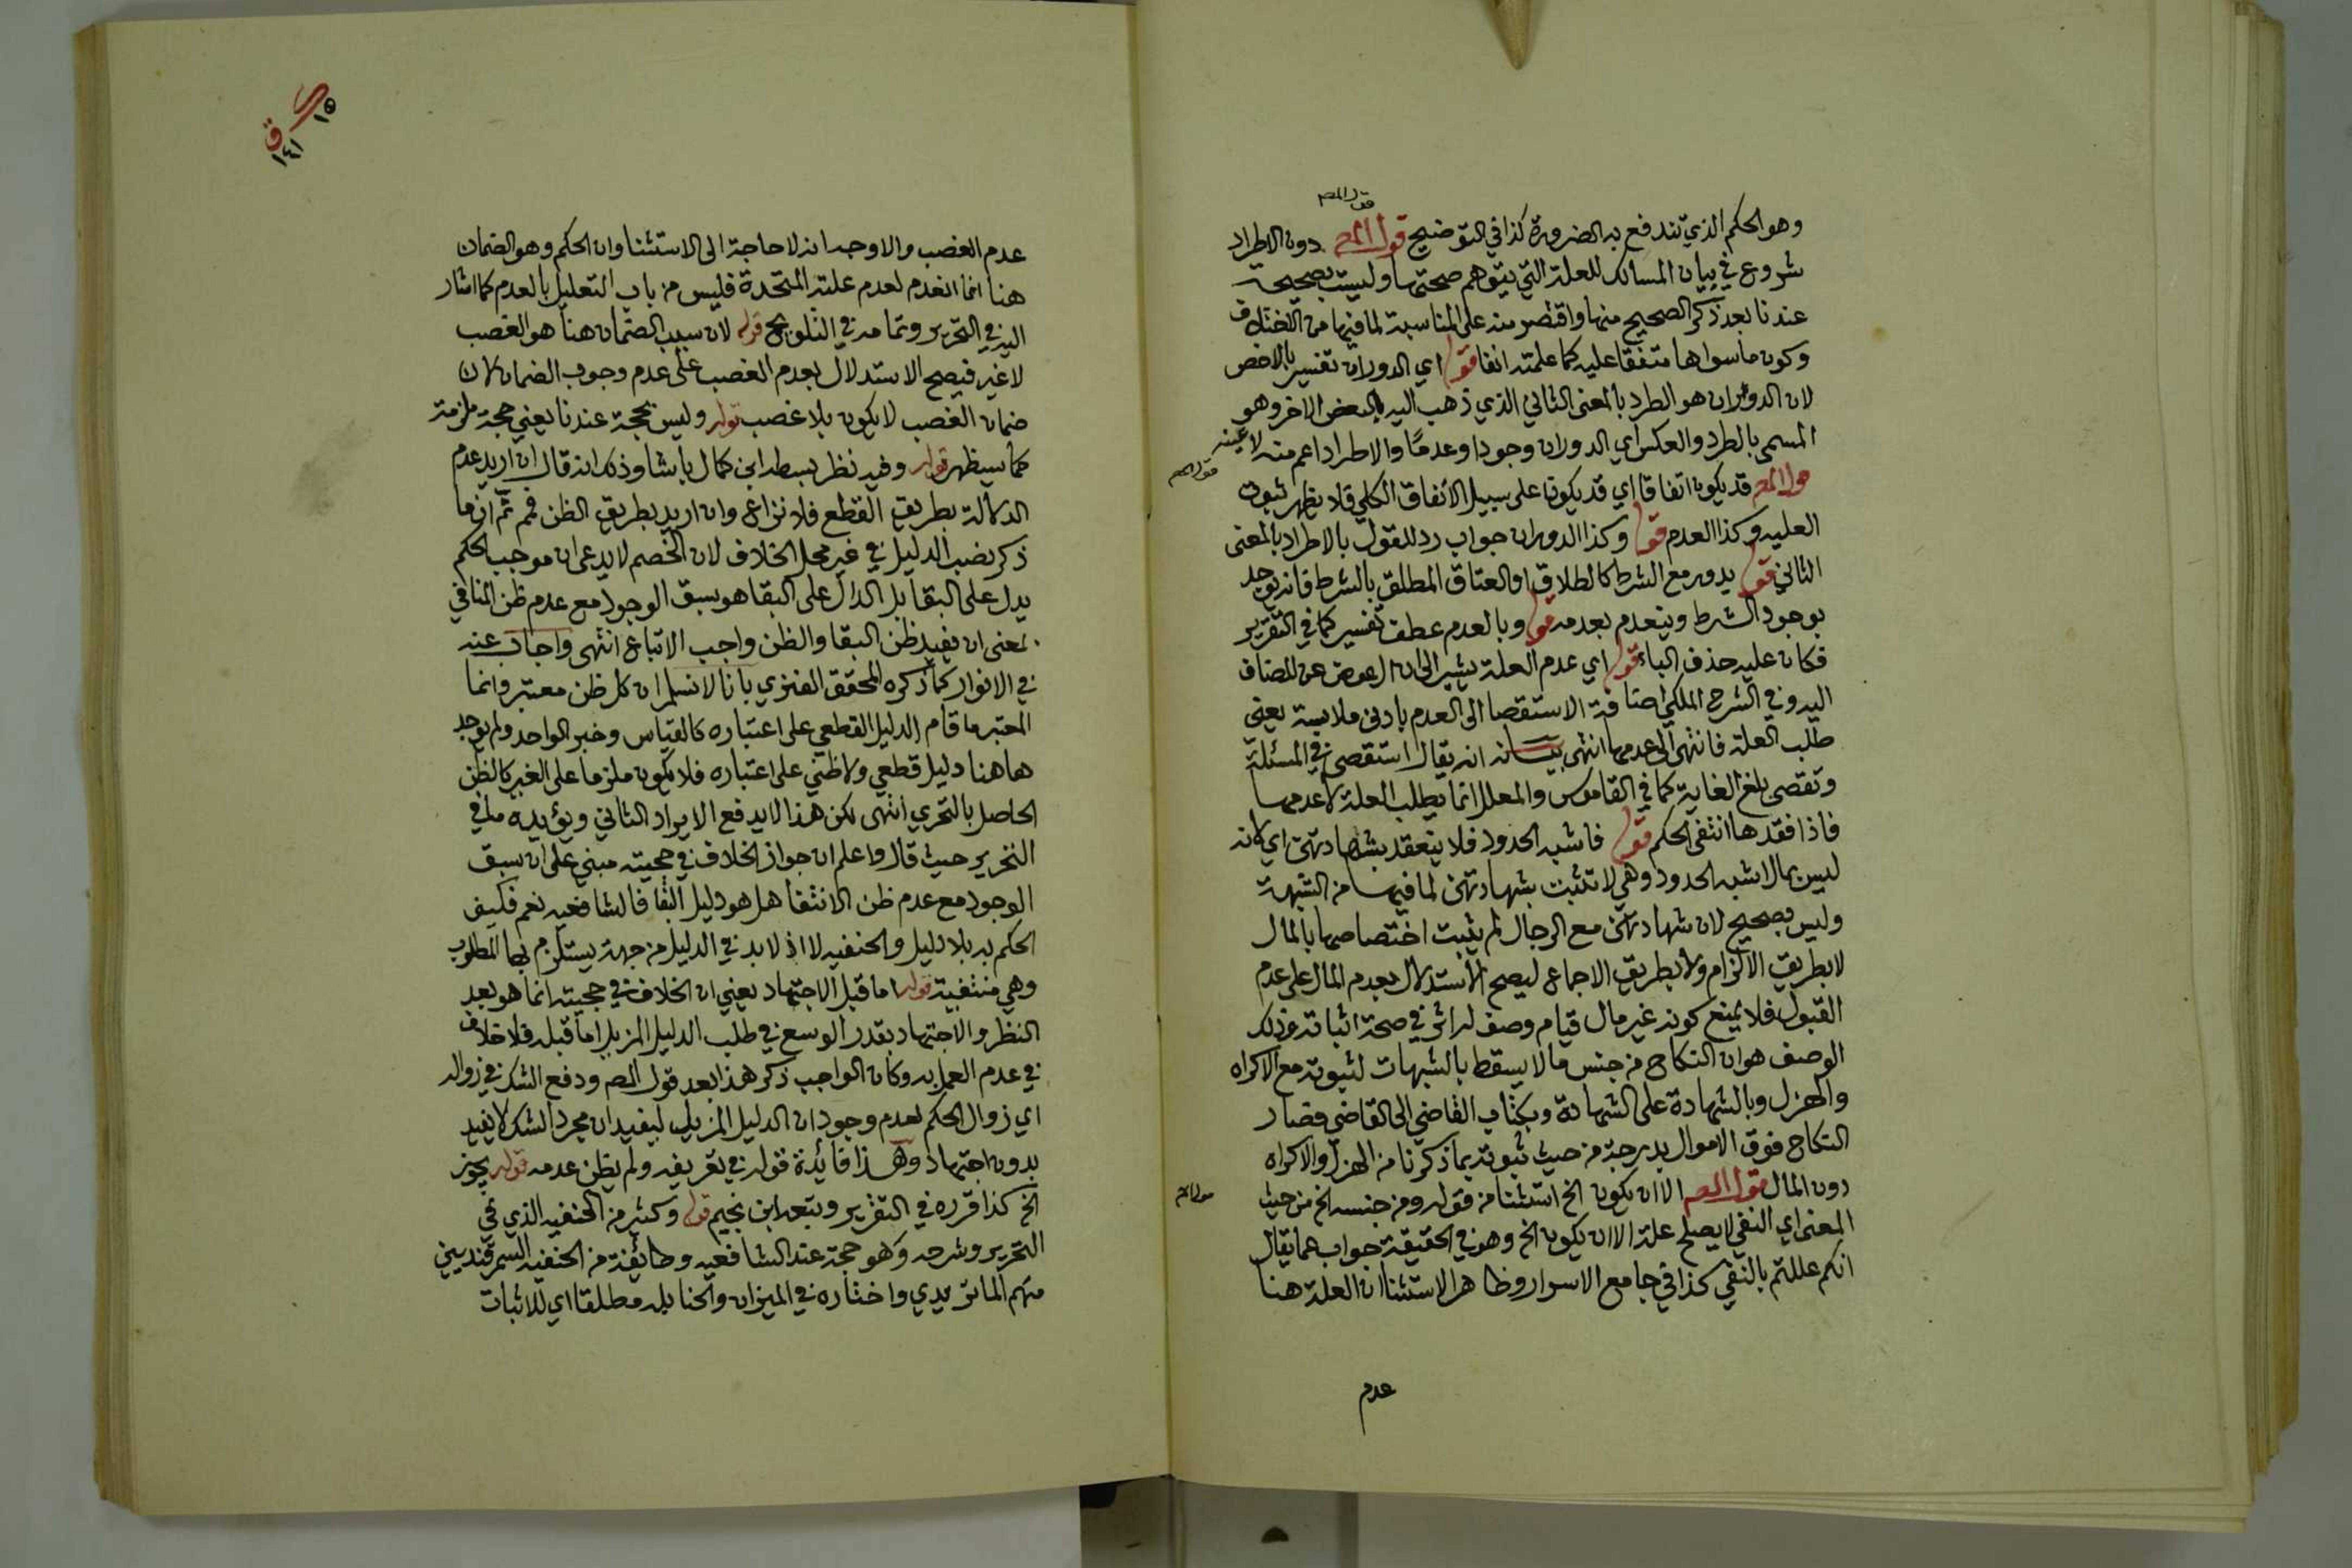 قول المص
وهو الحكم الذي تندفع به الضرورة كذا في التوضيح قول المص دون الاطراد
شروع في بيان المسالك للعلة التي يتوهم صحتها وليست بصحيحة
عندنا بعد ذكر الصحيح منها واقتصر منه على المناسبة لما فيها من الاختلاف
وكون ما سواها متفقا عليه كما علمته انفا قوله اي الدوران تفسير بالاخص
لان الدوران هو الطرد بالمعنى الثاني الذي ذهب اليه البعض الاخر وهو
المسمى بالطرد والعكس اي الدوران وجودا وعدما والاطراد اعم منه لا عينه
قول المص
قول المص قد يكون اتفاقا اي قد يكون على سبيل الاتفاق الكلي فلا يظهر ثبوت
العليه وكذا العدم قوله وكذا الدوران جواب رد للقول بالاطراد بالمعنى
الثاني قوله يدور مع الشرط كالطلاق او العتاق المطلق بالشرط فانه يوجد
بوجود الشرط وينعدم بعدمه قوله وبالعدم عطف تفسير كما في التقرير
فكان عليه حذف الباء قوله اي عدم العلة يشير الى ان ال عوض عن المضاف
اليه وفي الشرح الملكي اضافة الاستقصا الى العدم بادنى ملابسة يعني
طلب العلة فانتهى الى عدمها انتهى بيانه انه يقال استقصى في المسئلة
وتقصى بلغ الغاية كما في القاموس والمعلل انما يطلب العلة لا عدمها
فاذا فقدها انتفى الحكم قوله فاشبه الحدود فلا ينعقد بشهادتهن اي لانه
ليس بمال اشبه الحدود وهي لا تثبت بشهادتهن لما فيها من الشبهة
وليس بصحيح لان شهادتهن مع الرجال لم يثبت اختصاصها بالمال
لا بطريق الالزام ولا بطريق الاجماع ليصح الاستدلال بعدم المال على عدم
القبول فلا يمنع كونه غير مال قيام وصف له اثر في صحة اثباته وذلك
الوصف هو ان النكاح من جنس ما لا يسقط بالشبهات لثبوته مع الاكراه
والهزل وبالشهادة على الشهادة وبكتاب القاضي الى القاضي فصار
النكاح فوق الاموال بدرجة من حيث ثبوته بما ذكرنا من الهزل والاكراه
دون المال قول المص الا ان يكون الخ استثنا من قوله ومن جنسه الخ من حيث
قول المص
المعنى اي النفي لا يصلح علة الا ان يكون الخ وهو في الحقيقة جواب عما يقال
انكم عللتم بالنفي كذا في جامع الاسرار وظاهر الاستثنا ان العلة هنا
عدم
١٥
ق
١٤١
عدم الغصب والاوجه انه لا حاجة الى الاستثنا وان الحكم وهو الضمان
هنا انما انعدم لعدم علته المتحدة فليس من باب التعليل بالعدم كما اشار
اليه في التحرير وتمامه في التلويح قوله لان سبب الضمان هنا هو الغصب
لا غير فيصح الاستدلال بعدم الغصب على عدم وجوب الضمان لان
ضمان الغصب لا يكون بلا غصب قوله وليس بحجة عندنا يعني حجة ملزمة
كما سيظهر قوله وفيه نظر بسطه ابن كمال باشا وذلك انه قال ان اريد عدم
الدلالة بطريق القطع فلا نزاع وان اريد بطريق الظن فمم ثم ان ما
ذكر نصب الدليل في غير محل الخلاف لان الخصم لا يدعي ان موجب الحكم
يدل على البقا بل الدال على البقا هو سبق الوجود مع عدم ظن المنافي
بمعنى انه يفيد ظن البقا والظن واجب الاتباع انتهى واجاب عنه
في الانوار كما ذكره المحقق الفنري بانا لا نسلم ان كل ظن معتبر وانما
المعتبر ما قام الدليل القطعي على اعتباره كالقياس وخبر الواحد ولم يوجد
هاهنا دليل قطعي ولا ظني على اعتباره فلا يكون ملزما على الغير كالظن
الحاصل بالتحري انتهى لكن هذا لا يدفع الايراد الثاني ويؤيده ما في
التحرير حيث قال واعلم ان جواز الخلاف في حجيته مبني على ان سبق
الوجود مع عدم ظن الانتفا هل هو دليل البقا فالشافعيه نعم فليف
الحكم به بلا دليل والحنفيه لا اذ لا بد في الدليل من جهة يستلزم بها المطلوب
وهي منتفية قوله اما قبل الاجتهاد يعني ان الخلاف في حجيته انما هو بعد
النظر والاجتهاد بقدر الوسع في طلب الدليل المزيل اما قبله فلا خلاف
في عدم العمل به وكان الواجب ذكر هذا بعد قول المص ودفع الشك في زواله
اي زوال الحكم لعدم وجود ان الدليل المزيل ليفيد ان مجرد الشك لا يفيد
بدون اجتهاد وهذا فائدة قوله في تعريفه ولم يظن عدمه قوله يجوز
الخ كذا قرره في التقرير وتبعه ابن نجيم قوله وكثير من الحنفيه الذي في
التحرير وشرحه وهو حجة عند الشافعيه وطائفة من الحنفيه السمرقنديين
منهم الماتريدي واختاره في الميزان والحنابله مطلقا اي للاثبات